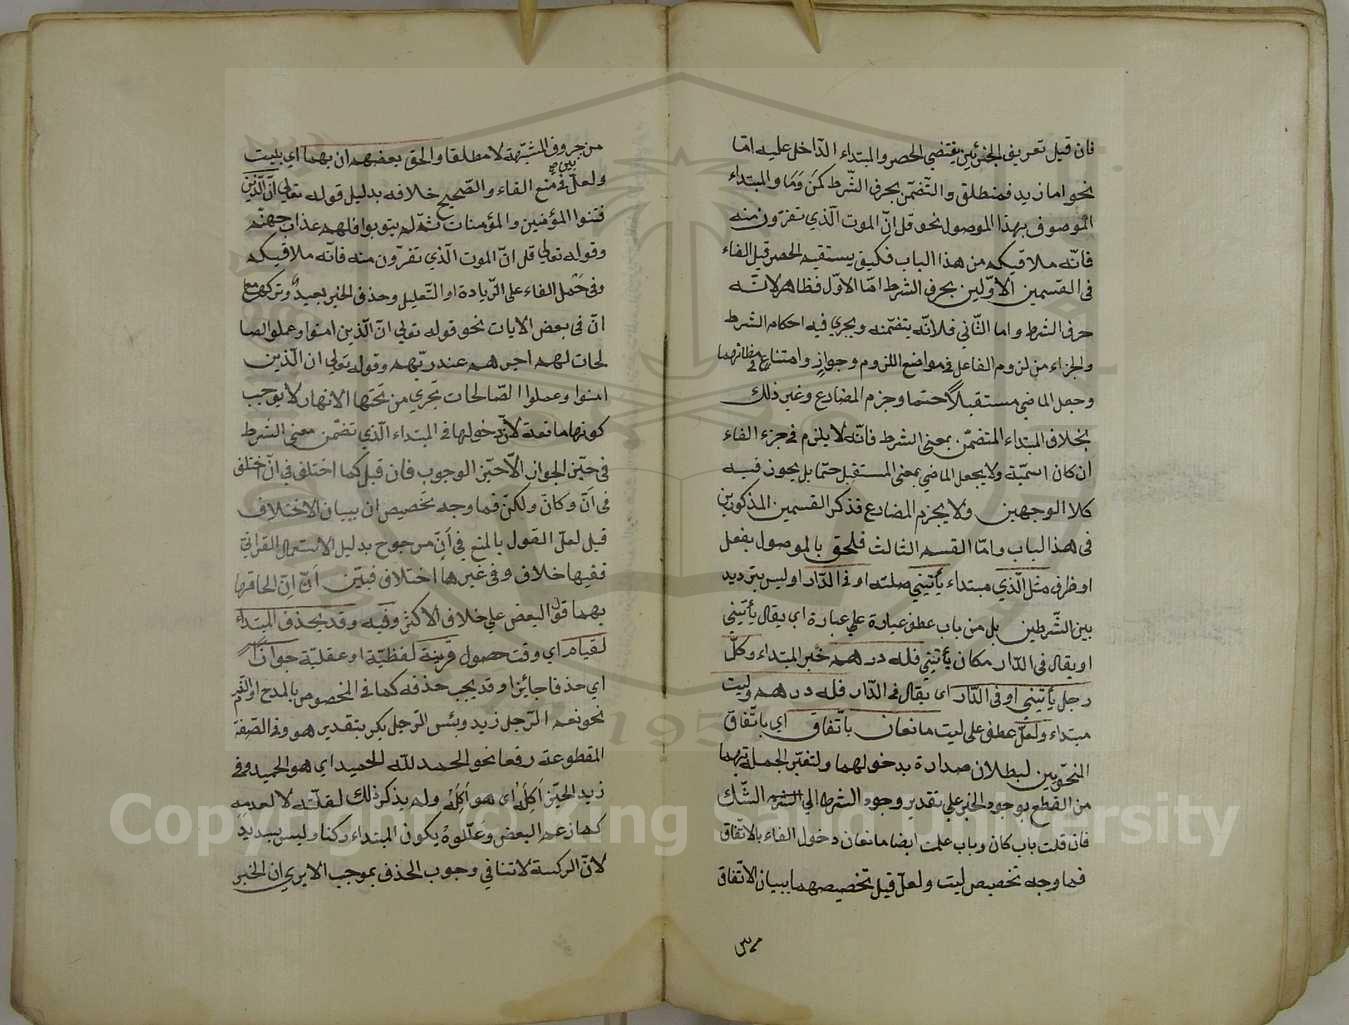 فان قيل تعريف الجزئين يقتضي الحصر والمبتداء الداخل عليه امّا
نحو اما زيد فمنطلق والتضمّن بحرف الشّرط كمَن وَمَا والمبتداء
الموصوف بهذا الموصول نحو قل انّ الموت الّذي تفرّون منه
فانّه ملاقيكم من هذا الباب فكيف يستقيم الحصر قيل الفاء
فى القسمين الاوّلين بحرف الشرط امّا الاوّل فظاهر لانّه
حرف الشرط واما الثّاني فلانّه يتضمّنه ويجري فيه احكام الشّرط
والجزاء من لزوم الفاء على مواضع اللزوم وجوازٍ وامتناع في مظانّهما
وجعل الماضي مستقبلاً حتما وجزم المضارع وغير ذلك
بخلاف المبتداء المتضمّن بمعنى الشرط فانّه لا يلزم في جزء الفاء
ان كان اسميّة ولا يجعل الماضي بمعنى المستقبل حتما بل يجون فيه
كلا الوجهين ولا يجزم المضارع فذكر القسمين المذكورين
فى هذا الباب وامّا القسم الثالث فلحق بالموصول بفعل
او ظرف مثل الّذي مبتداء يأتيني صلته او فى الدّار او ليس بترديد
بين الشّرطين بل من باب عطف عبارة علي عبارة اي يقال يأتيني
او يقال فى الدّار مكان يأتيني فله درهم خبر المبتداء وكلّ
رجل يأتيني او فى الدّار اى يقال فى الدّار فله درهم وليت
مبتداء ولعلّ عطف على ليت مانعان باتّفاق اي باتّفاق
النحويين لبطلان صدارة بدخولهما ولتغيّر الجملة بهما
من القطع بوجود الخبر علي تقدير وجود الشرط الي الشّك
فان قلت باب كان وباب علمت ايضا مانعان دخول الفاء بالاتّفاق
فما وجه تخصيص ليت ولعلّ قيل تخصيصهما ببيان الاتّفاق
من حروف المشبّهة لا مطلقا والحق بعضهم ان بهما اي بليت
ولعلّ فى منع الفاء والصّحيح خلافه بدليل قوله تعالي انّ الّذين
فتنوا المؤمنين والمؤمنات ثمّ لم يتوبوا فلهم عذاب جهنّم
وقوله تعالي قل انّ الموت الّذي تفرّون منه فانّه ملاقيكم
وفى حَمْل الفاء على الزّيادة او التّعليل وحذف الخبر بعيدٌ وتركها مع
انّ فى بعض الايات نحو قوله تعالي انّ الّذين امنوا وعملوا الصا
لحات لهم اجرهم عند ربّهم وقوله تعالي ان الّذين
امنوا وعملوا الصّالحات تجري من تحتها الانهار لا يوجب
كونها مانعة لانّ دخولها فى المبتداء الّذي تضمّن معنى الشرط
فى حيّز الجواز لا حيّز الوجوب فان قيل كما اختلف في انّ اختلف
فى انّ وكانّ ولكنّ فما وجه تخصيص ان ببيان الاختلاف
قيل لعلّ القول بالمنع في اَنّ مرجوح بدليل الاستعمال القرانيّ
ففيها خلاف وفى غيرها اختلاف فبيّن انّ انّ الحاقها
بهما قول البعض علي خلاف الاكثر وفيه وقد يحذف المبتداء
لقيام اي وقت حصول قرينة لفظيّة او عقليّة جوازًا
اي حذفا جائزا وقد يجب حذفه كما فى المخصوص بالمدح او الذّم
نحو نعم الرّجل زيد وبئس الرّجل بكر بتقدير هو وفى الصّفة
المقطوعة رفعا نحو الحمد للّه الحميد اي هو الحميد وفى
زيد الخبز اَكَلَهُ اى هو اَكَلَهُ ولم يذكر ذلك لقلّته لا لعدمه
كما زعم البعض وعلّلوه بكون المبتداء ركنا وليس بسديد
لانّ الركنيّة لا تنافي وجوب الحذف بموجب الا يري ان الخبر